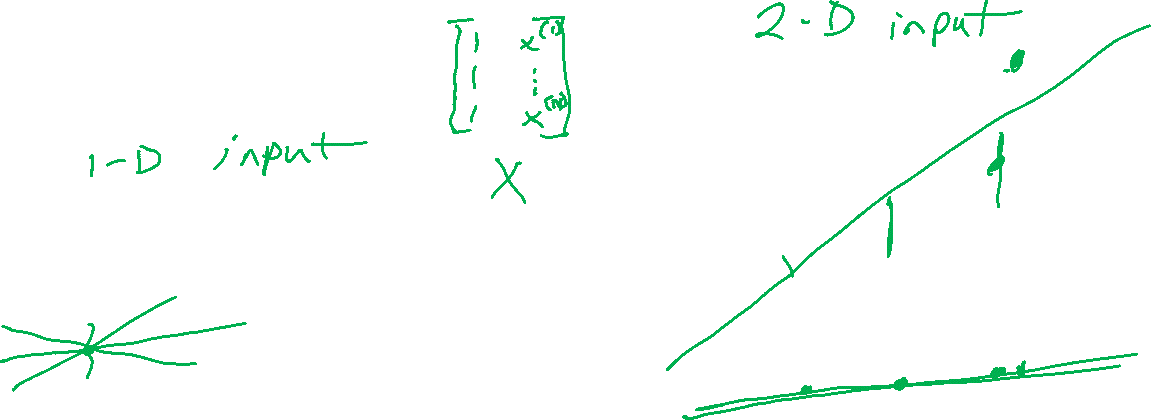 2-D input
1 x^(1)
1 ...
1 x^(n)
1-D input
X